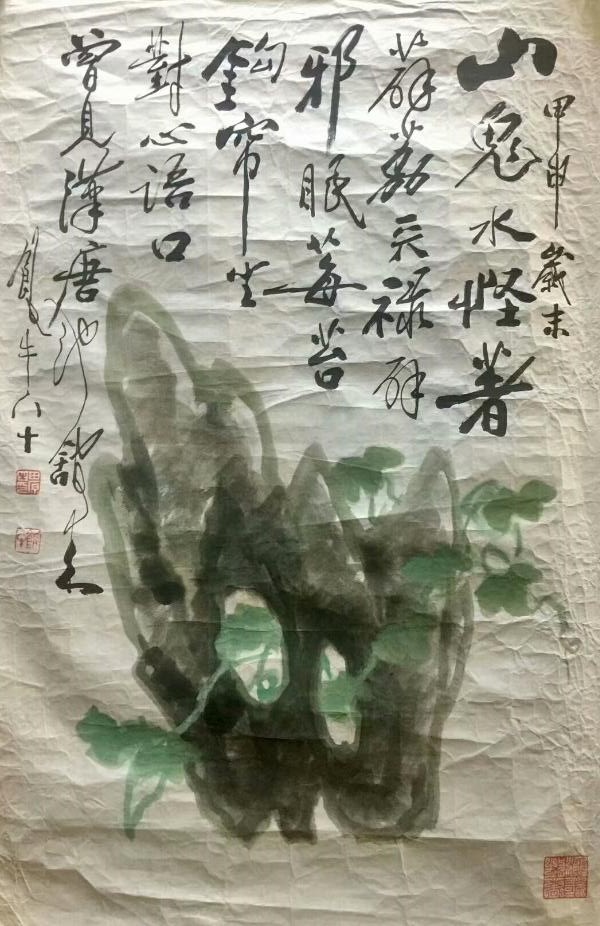 甲申歲末
山鬼水怪著
薜荔天祿辟
邪眠莓苔
鈎帘坐
對心語口
曾見漢唐池舘来
牛八十